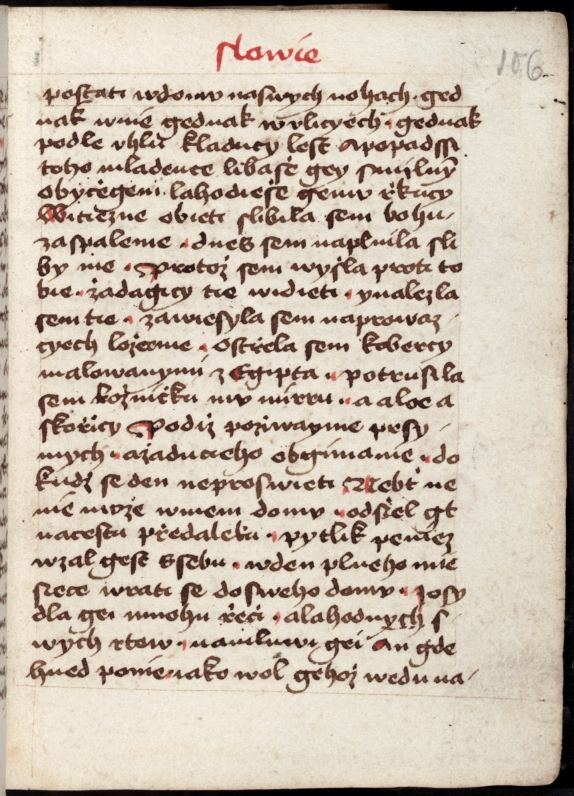 slowie
106
postati wdomu naswych nohach · ged
nak wnie gednak wvlicyech · gednak
podle vhluo kladucy lest Apopadssi
toho mladence libaše gey smilny
obyčegem · lahodieše gemu rkucy
Witiezne obieti slibila sem bohu ·
zaspasenie · dnes sem naplnila sli
by me · Protož sem wyšla proti to
bie · žadagicy tie widieti · ynalezla
sem tie · zawiesyla sem naprowaz ·
cyech lozecme · Ostřela sem kobercy
malowanymi z Egipta · potrusila
sem kožničku my mirru · a aloe a
skořicy Podiž poziwayme prsy ·
mych · azaducieho obgimanie · do
kudž se den neproswieti Nebt ne
nie muože wmem domu · odšel gt
nacestu předaleku · pytlik peniez
wzal gest Ssebu · wden plneho mie
siece wrati se doswého domu · Josy
dla gei mnohu řeči · alahodnych s
wych rtow · namluwi gei An gde
hned ponie · iako wol gehož wedu na ·